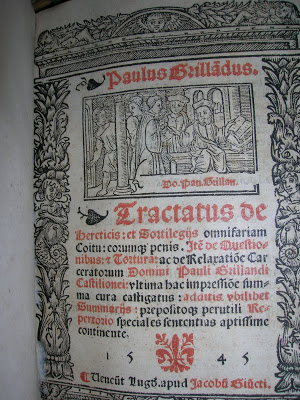 Paulus Grillãdus.
Do. Pau. Grillan.
Tractatus de
Hereticis: et Sortilegijs omnifariam
Coitu: eorumqꝫ penis. Itẽ de Questio-
nibus: et Tortura: ac de Relaxatiõe Car
ceratorum Domini Pauli Grillandi
Castilionei: vltima hac impressiõe sum
ma cura castigatus: additis vbilibet
Summarijs: prepositoqꝫ perutili Re-
pertorio speciales sententias aptissime
continente.
1 5 4 5
Veneũt Lugd. apud Jacobũ Giũcti.